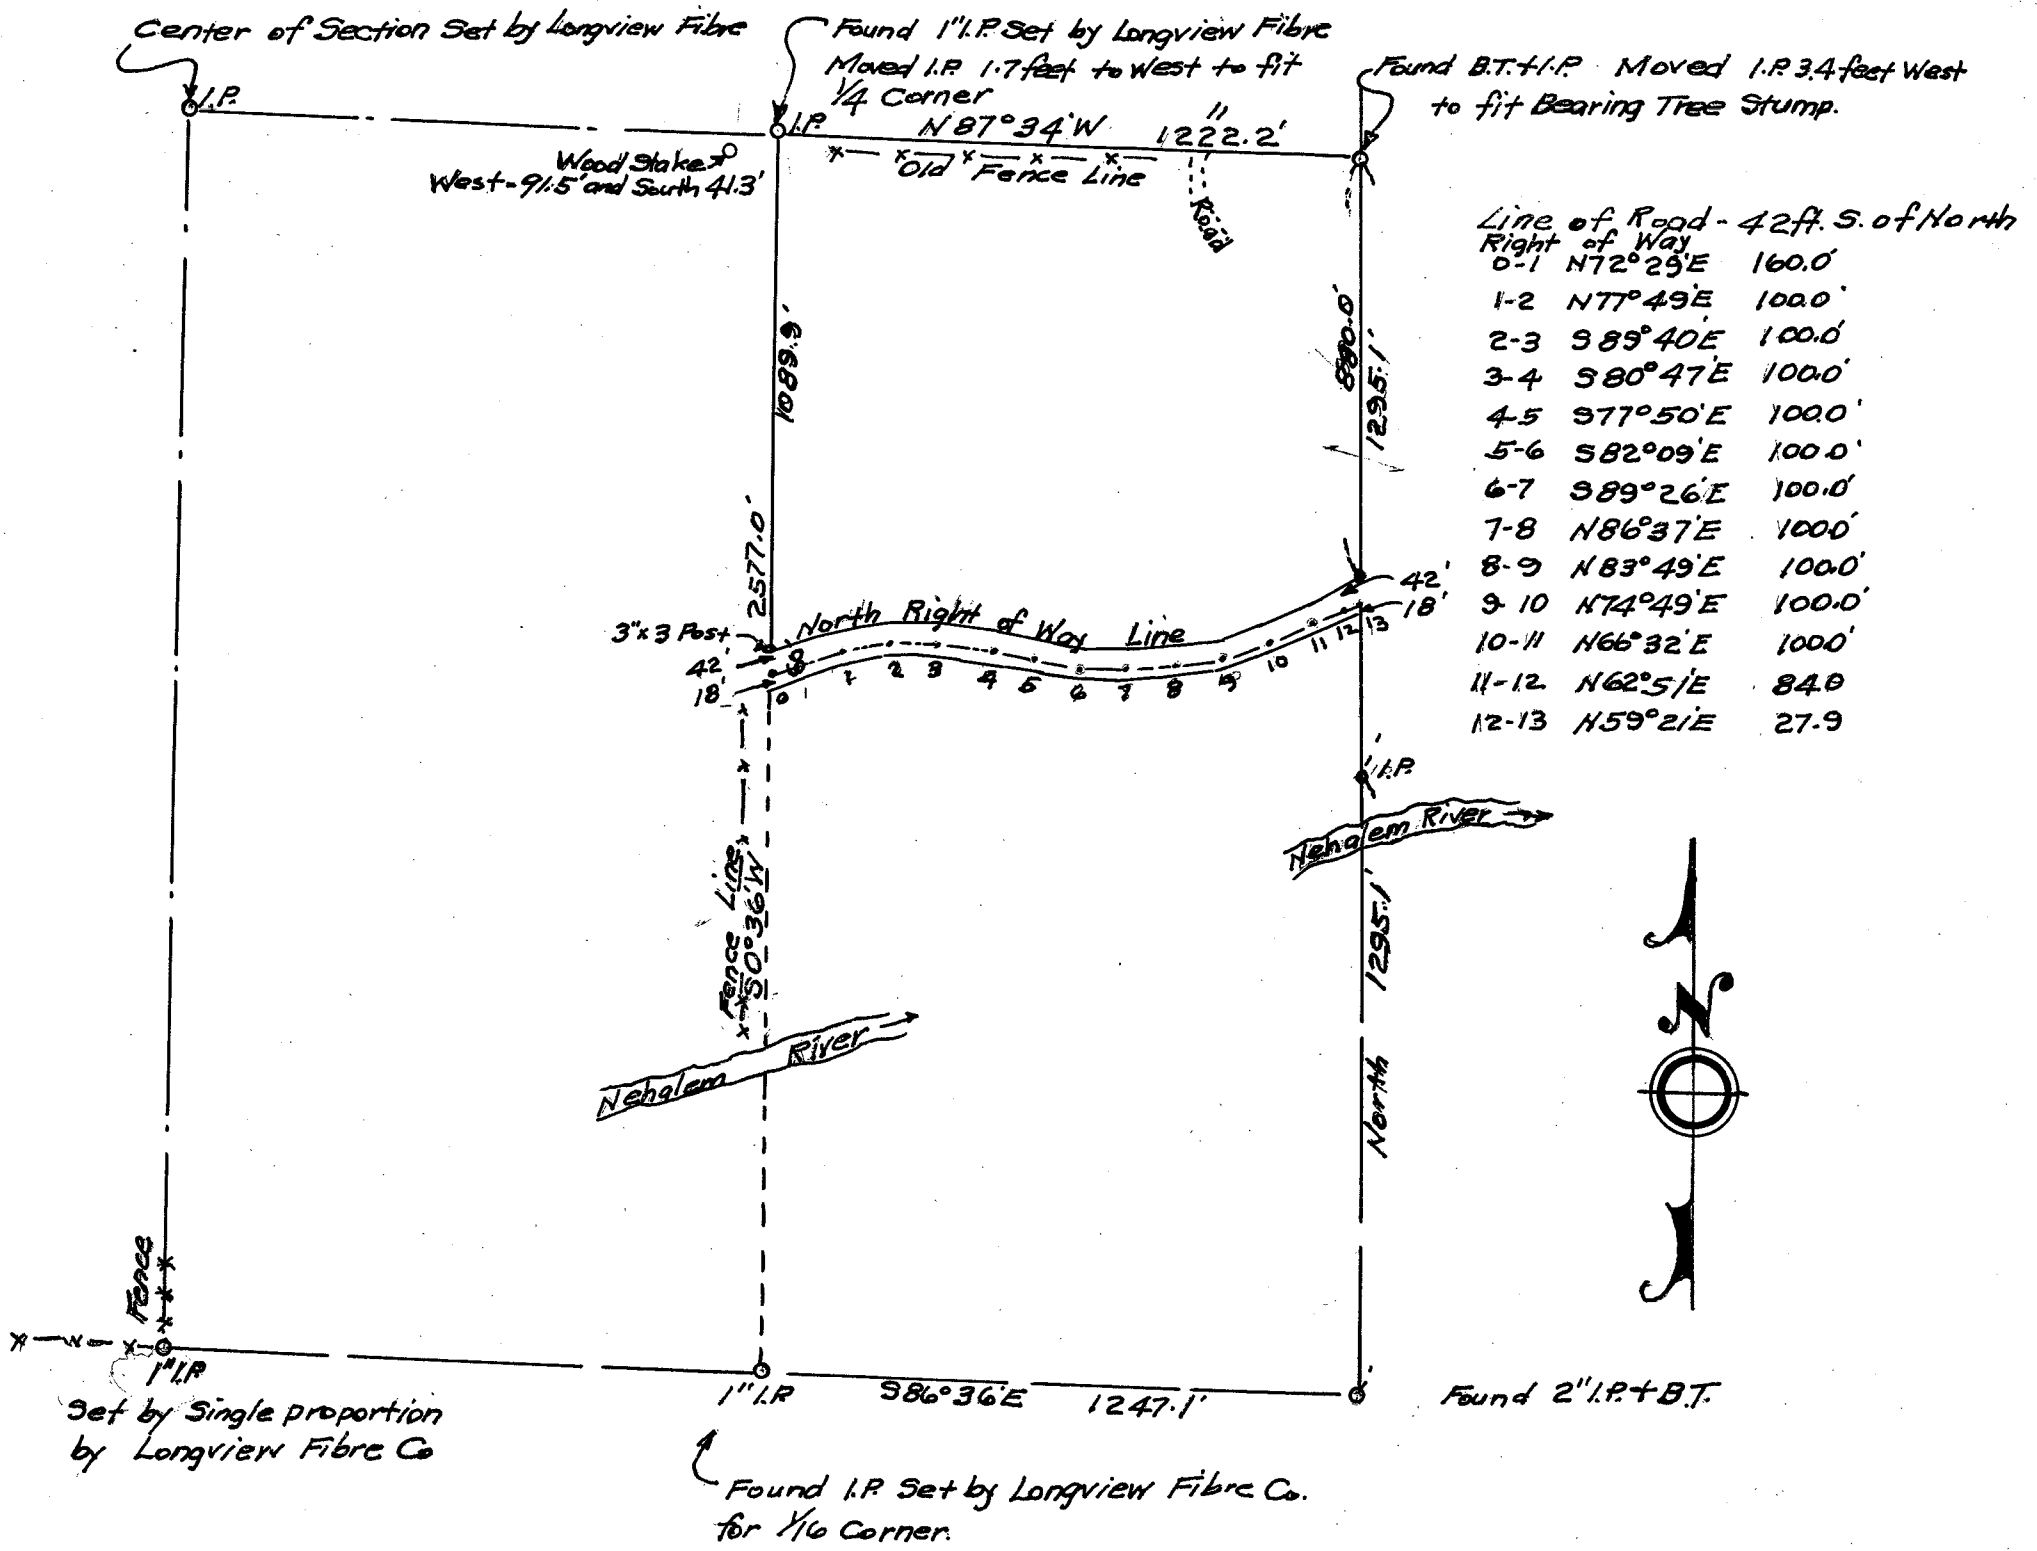 Center of Section Set by Longview Fibre
I.P.
Found 1" I.P. Set by Longview Fibre
Moved I.P. 1.7 feet to West to fit
1/4 Corner
I.P.
Found B.T. + I.P. Moved I.P. 3.4 feet West
to fit Bearing Tree Stump.
N 87° 34' W 1222.2'
Wood Stake
West - 91.5' and South 41.3'
Old Fence Line
Road
Line of Road - 42 ft. S. of North
Right of Way
0-1 N72° 29'E 160.0'
1-2 N77° 49'E 100.0'
2-3 S89° 40'E 100.0'
3-4 S80° 47'E 100.0'
4-5 S77° 50'E 100.0'
5-6 S82° 09'E 100.0'
6-7 S89° 26'E 100.0'
7-8 N86° 37'E 100.0'
8-9 N83° 49'E 100.0'
9-10 N74° 49'E 100.0'
10-11 N66° 32'E 100.0'
11-12 N62° 51'E 84.0
12-13 N59° 21'E 27.9
1089.9'
2577.0'
880.0'
1295.1'
3"x3 Post
42'
18'
North Right of Way Line
42'
18'
0 1 2 3 4 5 6 7 8 9 10 11 12 13
I.P.
Nehalem River
Fence Line
S0° 36'W
Nehalem River
1295.1'
North
N
Fence
1" I.P.
Set by Single proportion
by Longview Fibre Co
1" I.P.
S86° 36'E 1247.1'
Found 2" I.P. + B.T.
Found I.P. Set by Longview Fibre Co.
for 1/16 Corner.